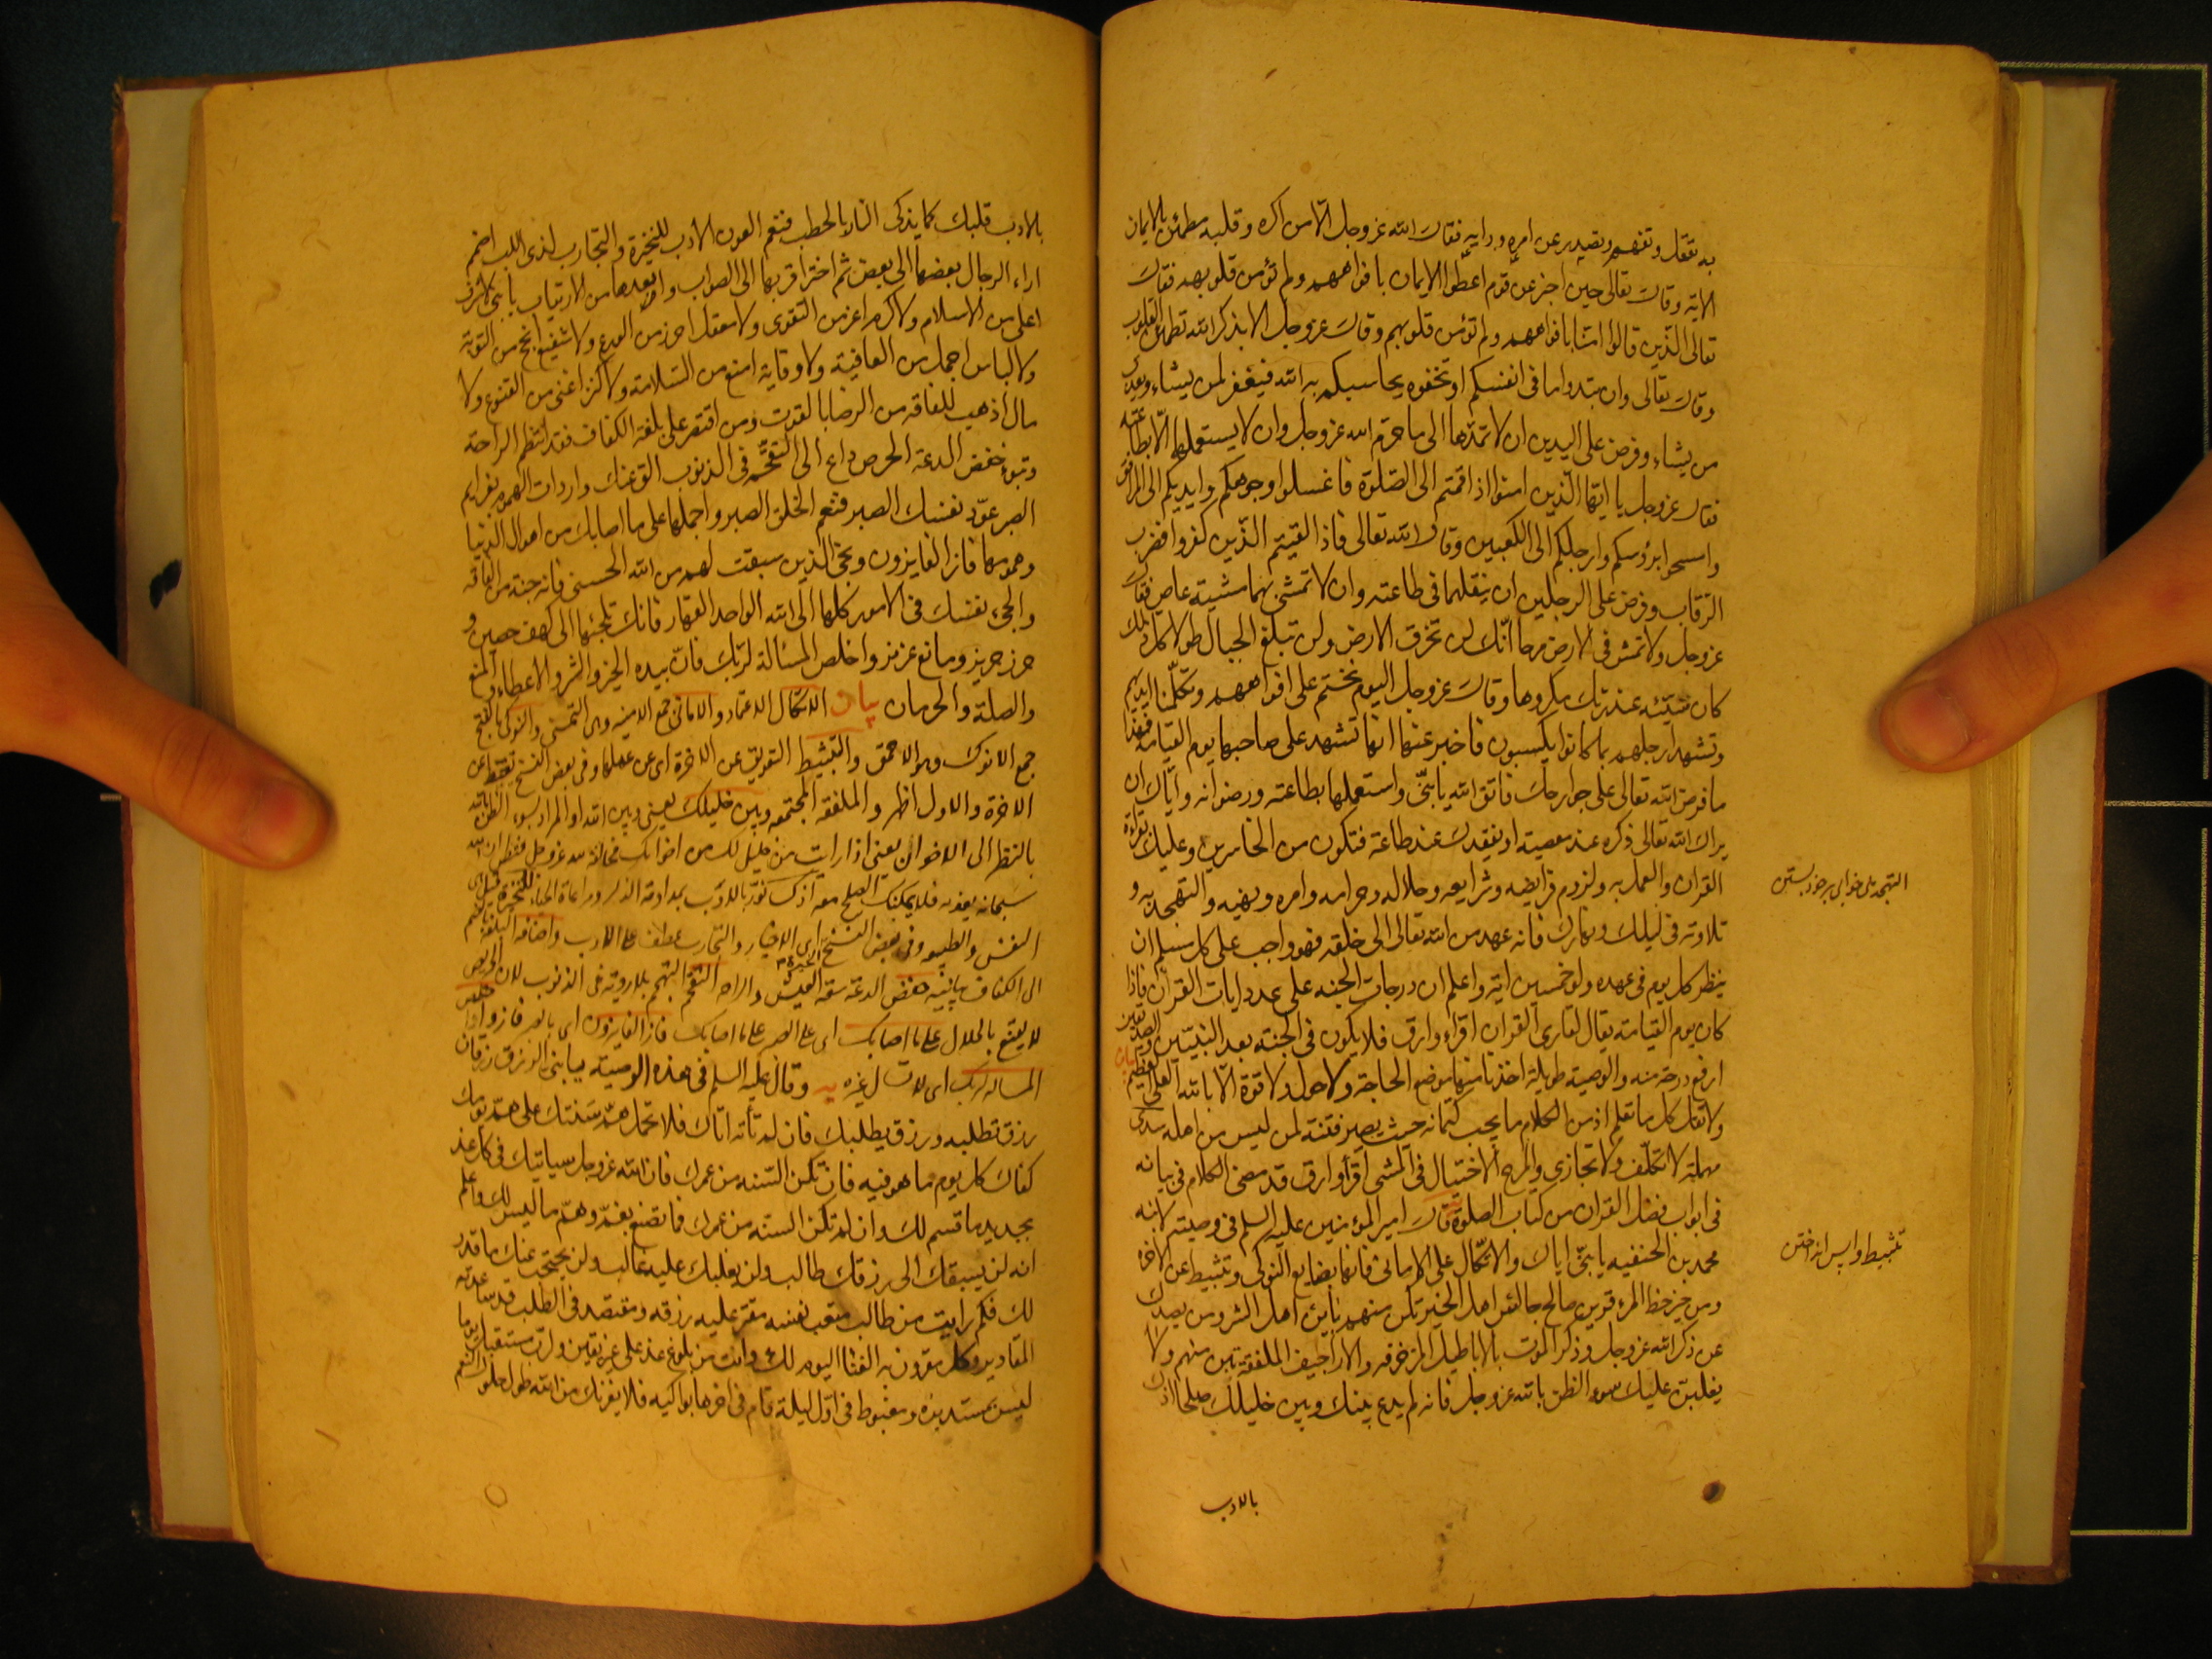 به تعقل وتفهم وتصدر عن امره ورايه فقال الله عز وجل الا من اكره وقلبه مطمئن بالايمان
الاية وقال تعالى حين اخبر عن قوم اعطوا الايمان بافواههم ولم تؤمن قلوبهم فقال
تعالى الذين قالوا امنا بافواههم ولم تؤمن قلوبهم وقال عز وجل الا بذكر الله تطمئن القلوب
وقال تعالى وان تبدوا ما فى انفسكم او تخفوه يحاسبكم به الله فيغفر لمن يشاء ويعذب
من يشاء وفرض على اليدين ان لا تمدهما الى ما حرم الله عز وجل وان لا يستعملهما الا بطاعته
فقال عز وجل يا ايها الذين امنوا اذا قمتم الى الصلوة فاغسلوا وجوهكم وايديكم الى المرافق
وامسحوا برؤسكم وارجلكم الى الكعبين وقال الله تعالى فاذا لقيتم الذين كفروا فضرب
الرقاب وفرض على الرجلين ان ينقلهما فى طاعته وان لا تمشى بهما مشية عاص فقال
عز وجل ولا تمش فى الارض مرحا انك لن تخرق الارض ولن تبلغ الجبال طولا كل ذلك
كان سيئه عند ربك مكروها وقال عز وجل اليوم نختم على افواههم وتكلمنا ايديهم
وتشهد ارجلهم بما كانوا يكسبون فاخبر عنها انها تشهد على صاحبها يوم القيامة فهذا
ما فرض الله تعالى على جوارحك فاتق الله يا بنى واستعملها بطاعته ورضوانه واياك ان
يراك الله تعالى ذكره عند معصيته او يفقدك عند طاعته فتكون من الخاسرين وعليك بقراءة
القران والعمل به ولزوم فرايضه وشرايعه وحلاله وحرامه وامره ونهيه والتهجد به و
التهجد بى خوابى بر خود بستن
تلاوته فى ليلك ونهارك فانه عهد من الله تعالى الى خلقه فهو واجب على كل مسلم ان
ينظر كل يوم فى عهده ولو خمسين اية واعلم ان درجات الجنه على عدد ايات القران فاذا
كان يوم القيامة يقال لقارى القران اقراء وارق فلا يكون فى الجنة بعد النبيين والصديقين
ارفع درجة منه والوصية طويلة اخذنا منها موضع الحاجة ولا حول ولا قوة الا بالله العلى العظيم
بيان
ولا تقل كل ما تعلم اذ من الكلام ما يجب كتمانه حيث يصير فتنة لمن ليس من اهله سدى
مهملة لا تكلف ولا تجازى والمرح الاختيال فى المشى اقرأ وارق قد مضى الكلام فى بيانه
فى ابواب فضل القران من كتاب الصلوة قال امير المؤمنين عليه السلم فى وصيته لابنه
محمد بن الحنفيه يا بنى اياك والاتكال على الامانى فانها بضايع النوكى وتثبيط عن الاخرة
تثبيط واپس انداختن
ومن خير حظ المرء قرين صالح جالس اهل الخير تكن منهم باين اهل الشر ومن يصدك
عن ذكر الله عز وجل وذكر الموت بالاباطيل المزخرفه والاراجيف الملفقة تبن منهم ولا
يغلبن عليك سوء الظن بالله عز وجل فانه لم يدع بينك وبين خليلك صلحا اذك
بالادب
بالادب قلبك كما يذكى النار بالحطب فنعم العون الادب للنحيزة والتجارب لذى اللب اضمم
اراء الرجال بعضها الى بعض ثم اختر اقربها الى الصواب وابعدها من الارتياب يا بنى لا شرف
اعلى من الاسلام ولا كرم اعز من التقوى ولا معقل احرز من الورع ولا شفيع انجح من التوبة
ولا لباس اجمل من العافية ولا وقاية امنع من السلامة ولا كنز اغنى من القنوع ولا
مال اذهب للفاقة من الرضا بالقوت ومن اقتصر على بلغة الكفاف فقد انتظم الراحة
وتبوء خفض الدعة الحرص داع الى التقحم فى الذنوب الق عنك واردات الهموم بعزايم
الصبر عود نفسك الصبر فنعم الخلق الصبر واحملها على ما اصابك من اهوال الدنيا
وهمومها فاز الفايزون ونجى الذين سبقت لهم من الله الحسنى فانه جنة من الفاقة
والجئ نفسك فى الامور كلها الى الله الواحد القهار فانك تلجئها الى كهف حصين و
حرز حريز ومانع عزيز واخلص المسألة لربك فان بيده الخير والشر والاعطاء والمنع
والصلة والحرمان بيان الاتكال الاعتماد والامانى جمع الامنيه وهى التمنى والنوكى بالفتح
جمع الانوك وهو الاحمق والتثبيط التعويق عن الاخرة اى عن عملها وفى بعض النسخ تثبط عن
الاخرة والاول اظهر والملفقة المجتمعه وبين خليلك يعنى وبين الله او المراد سوء الظن بالله
بالنظر الى الاخوان يعنى اذا رايت من خليل لك من اخوانك مخالفة لله عز وجل فتظن ان الله
سبحانه يعذبه فلا يمكنك الصلح معه اذك نور بالادب بمداومة الذكر ومراعاة الحياء للنحيزة قيل هى
النفس والطبيعه وفى بعض النسخ اى الاختيار والتجارب عطف على الادب واضافة البلغة
الى الكفاف بيانيه خفض الدعة سعة العيش والراحه التقحم التهجم بلا روية فى الذنوب لان الحريص
لا يقنع بالحلال على ما اصابك اى على الصبر على ما اصابك فاز الفايزون اى بالصبر فازوا اخلص
المسالة لربك اى لا تسال غيره يه وقال عليه السلم فى هذه الوصية يا بنى الرزق رزقان
رزق تطلبه ورزق يطلبك فان لم تأته اتاك فلا تحمل هم سنتك على هم يومك
كفاك كل يوم ما هو فيه فان تكن السنه من عمرك فان الله عز وجل سياتيك فى كل غد
بجديد ما قسم لك وان لم تكن السنه من عمرك فما تصنع بغم وهم ما ليس لك واعلم
انه لن يسبقك الى رزقك طالب ولن يغلبك عليه غالب ولن يحتجب عنك ما قدر
لك فكم رايت من طالب متعب نفسه مقتر عليه رزقه ومقتصد فى الطلب قد ساعدته
المقادير وكل مقرون به الفنا اليوم لك وانت من بلوغ غد على غير يقين ولرب مستقبل يوما
ليس بمستدبره ومغبوط فى اول ليلة قام فى اخرها بواكيه فلا يغرنك من الله طول حلول النعم